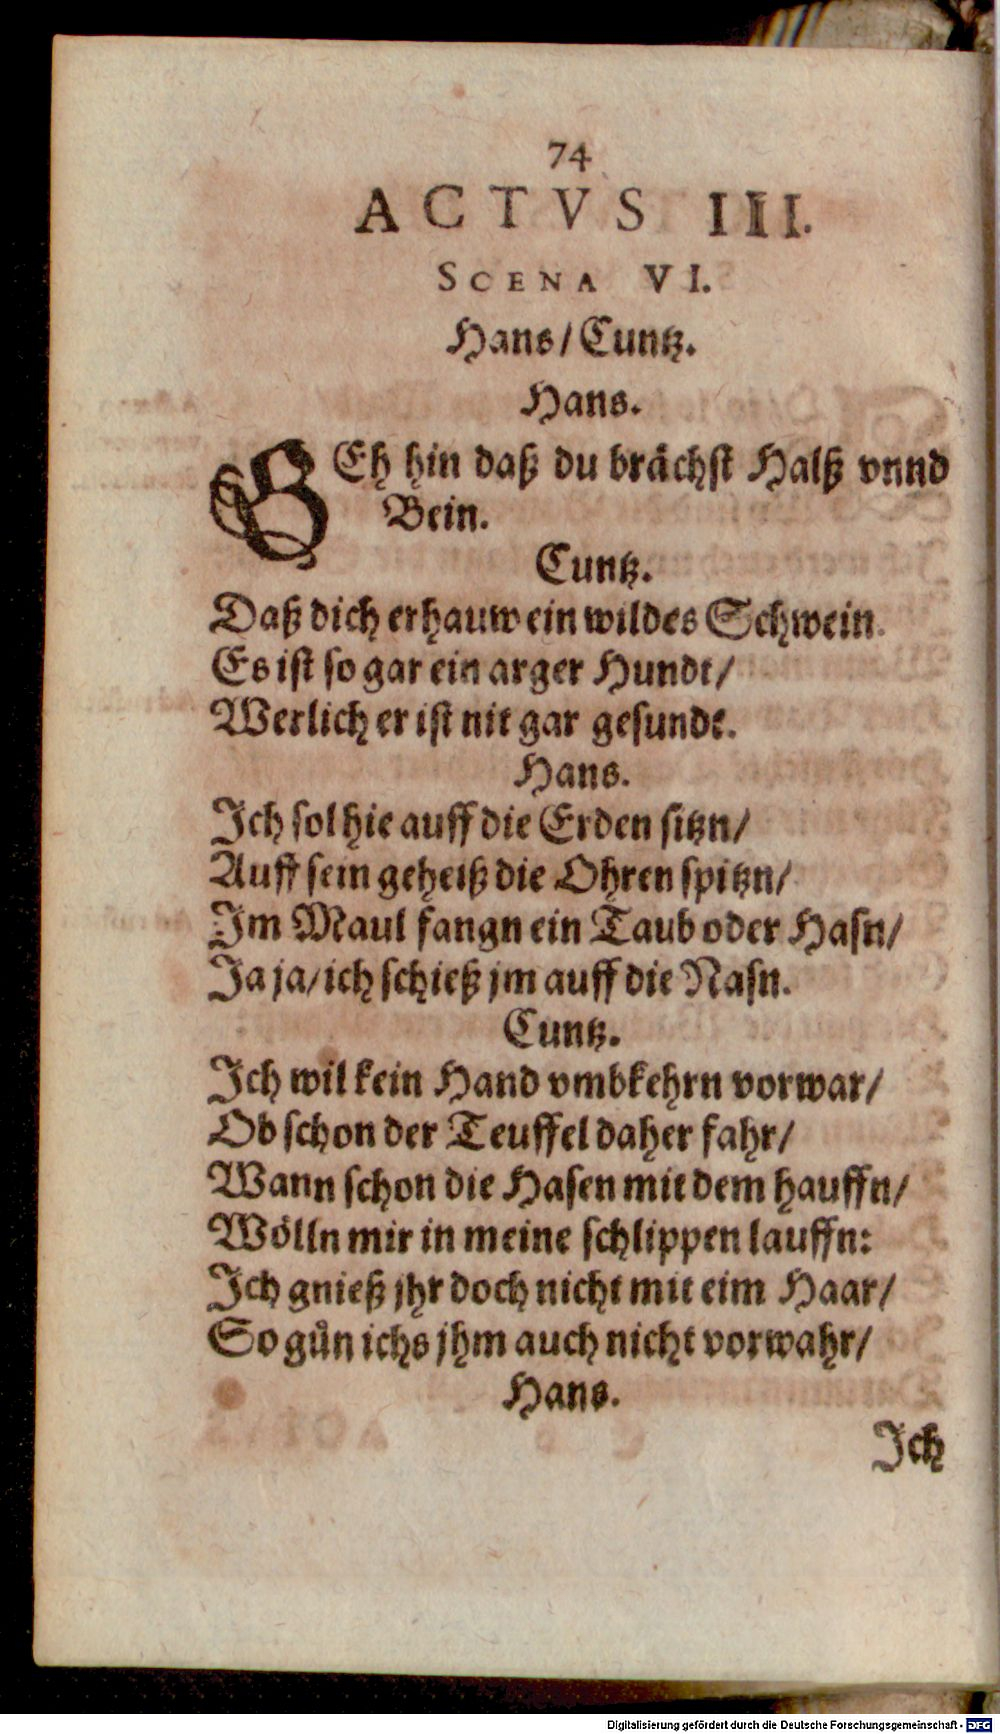 74
ACTVS III.
SCENA VI.
Hans/Cuntz.
Hans.
GEh hin daß du brächst Halß vnnd
Bein.
Cuntz.
Daß dich erhauw ein wildes Schwein.
Es ist so gar ein arger Hundt/
Werlich er ist nit gar gesundt.
Hans.
Ich sol hie auff die Erden sitzn/
Auff sein geheiß die Ohren spitzn/
Im Maul fangn ein Taub oder Hasn/
Ja ja/ich schieß jm auff die Nasn.
Cuntz.
Ich wil kein Hand vmbkehrn vorwar/
Ob schon der Teuffel daher fahr/
Wann schon die Hasen mit dem hauffn/
Wölln mir in meine schlippen lauffn:
Ich gnieß jhr doch nicht mit eim Haar/
So gün ichs jhm auch nicht vorwahr/
Hans.
Ich
Digitalisierung gefördert durch die Deutsche Forschungsgemeinschaft - DFG